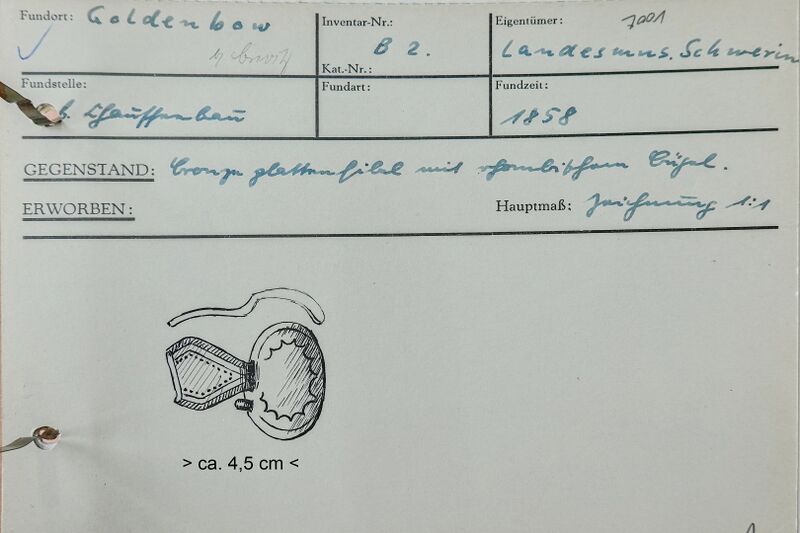 Fundort: Goldenbow
Inventar-Nr.: B 2.
Kat.-Nr.:
Eigentümer: 7001
Landesmus. Schwerin
Fundstelle: b. Chausseebau
Fundart:
Fundzeit: 1858
GEGENSTAND: Bronzeplattenfibel mit rhombischem Bügel.
ERWORBEN:
Hauptmaß: Zeichnung 1:1
> ca. 4,5 cm <